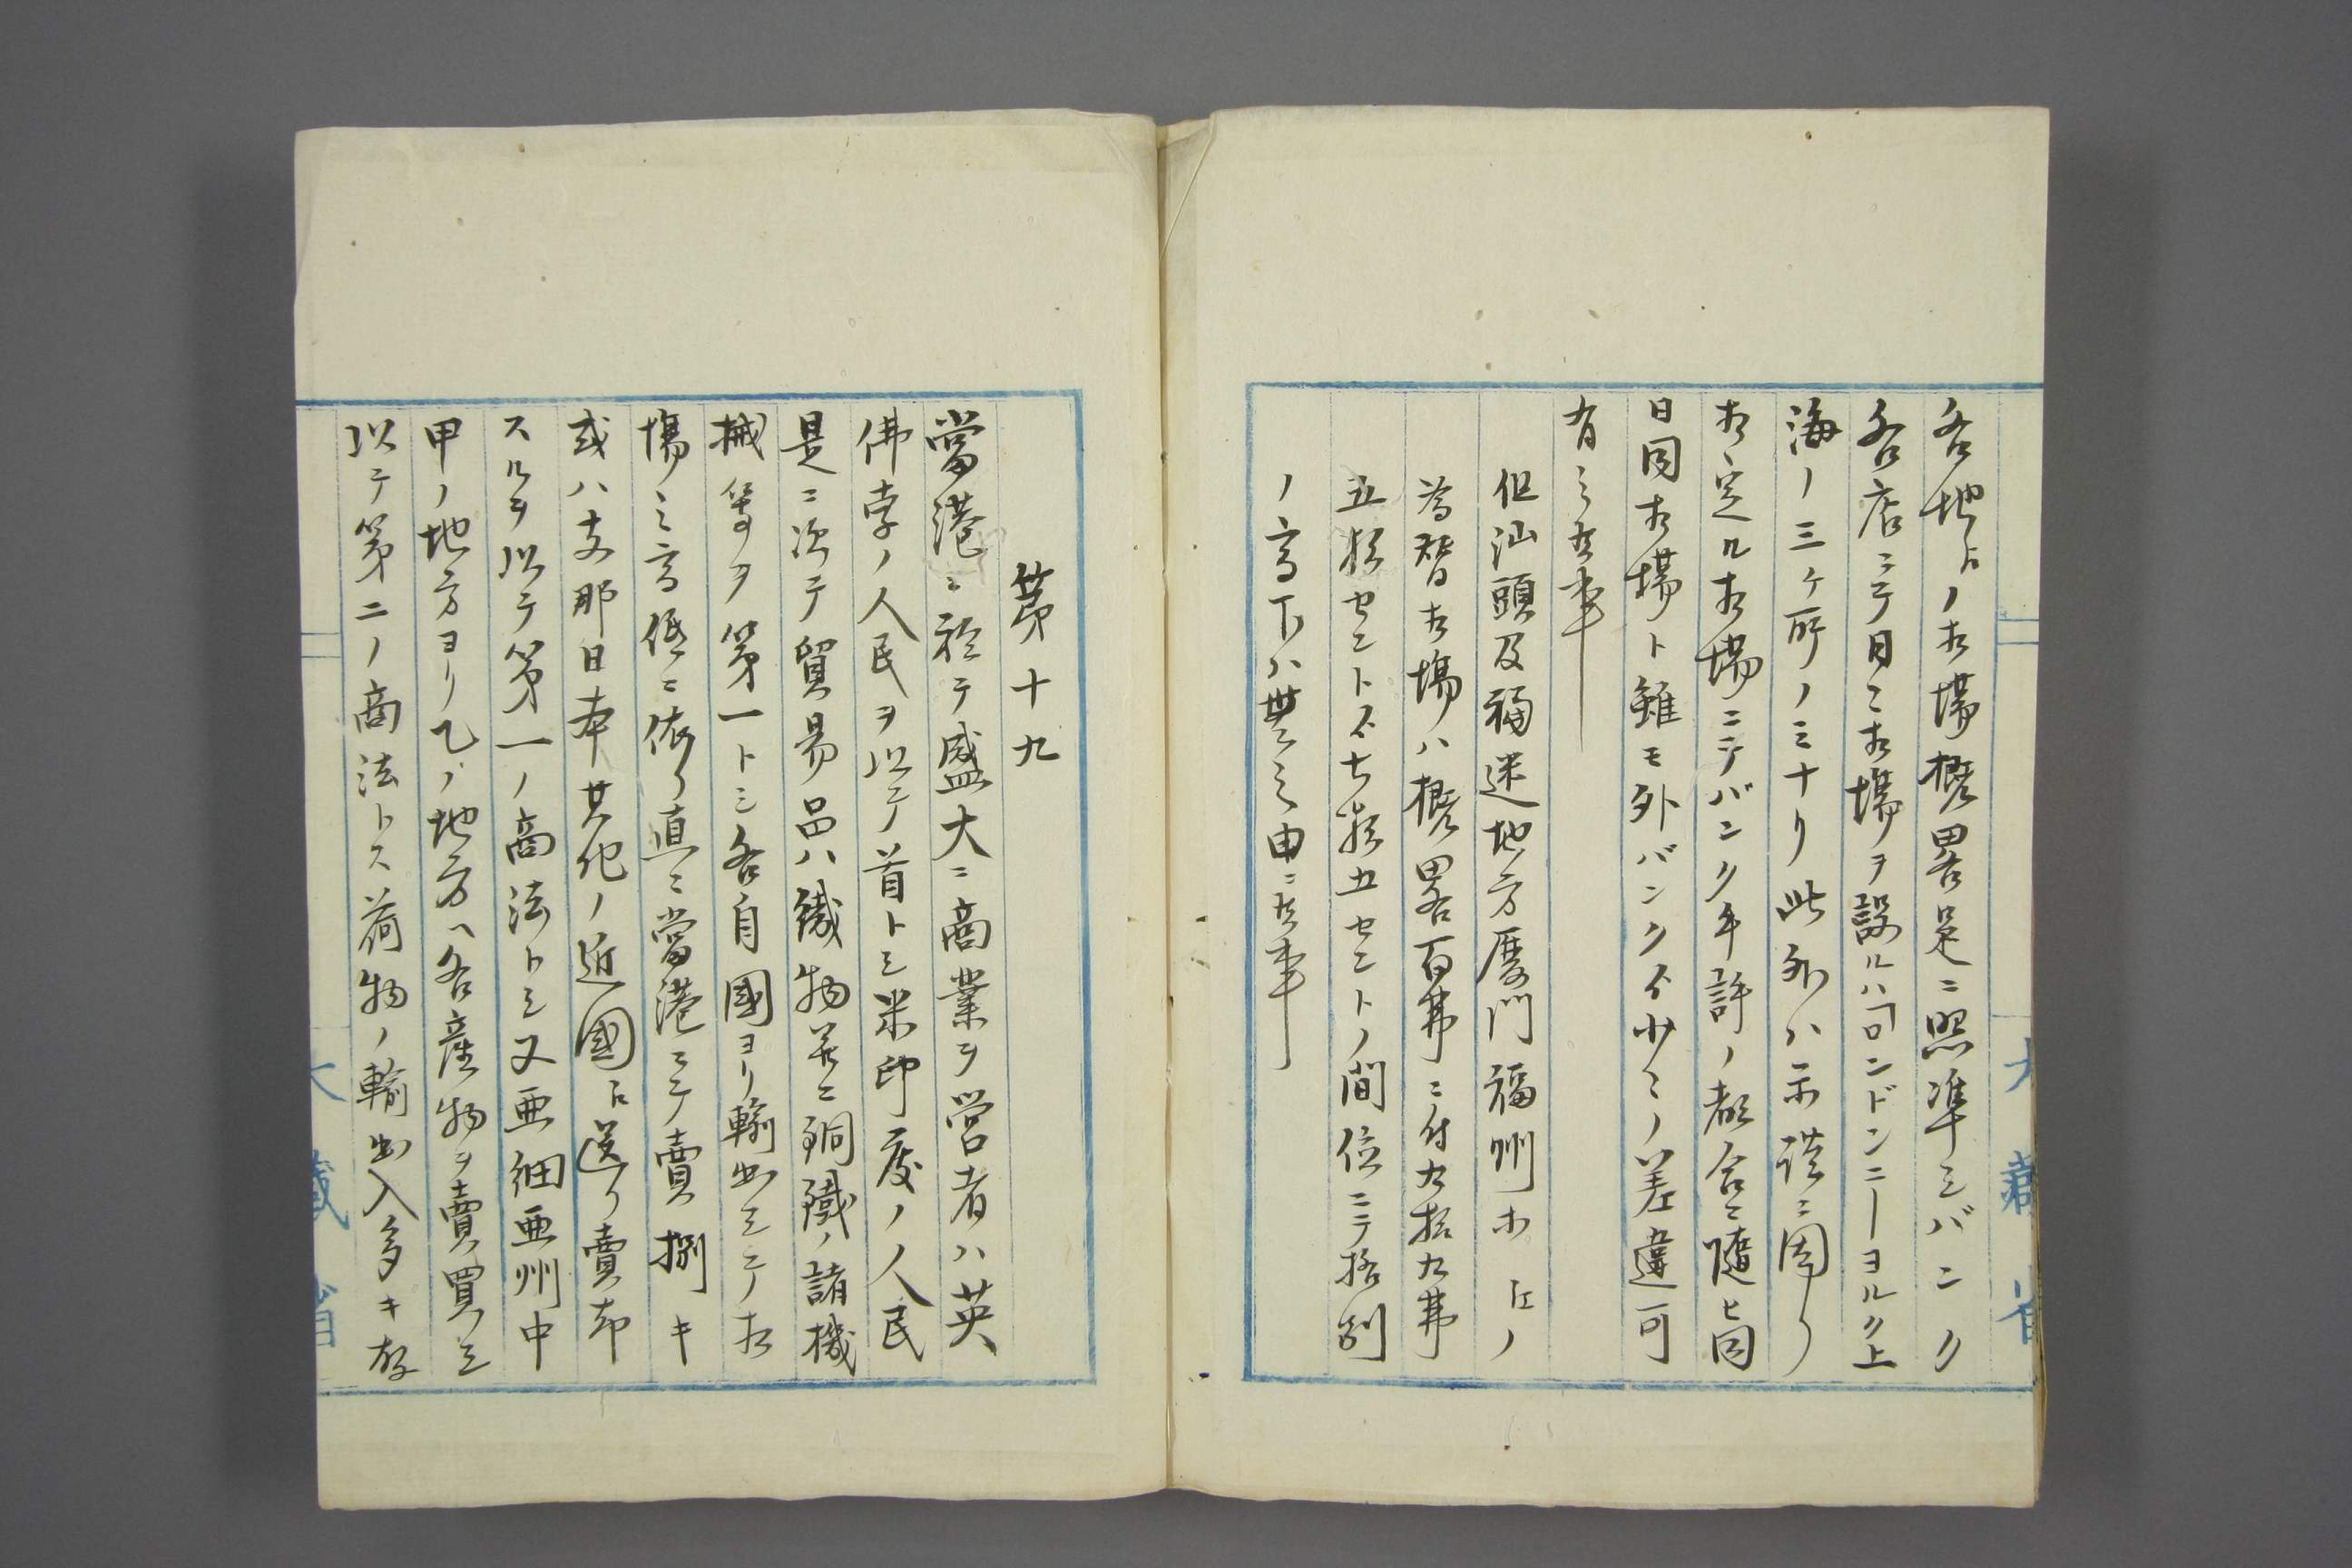 各地トノ相場概畧是ニ照準シバンク
各店ニテ日々相場ヲ設ルハ「ロンドンニーヨルク上
海ノ三ケ所ノミナリ此外ハ示談ニ因リ
相定ル相場ニテバンク手許ノ都合ニ隨ヒ同
日同相場ト雖モ外バンクハ少々ノ差違可
有之候事
但汕頭及福迷地方厦門福州ホ ヒノ
為替相場ハ概畧百弗ニ付九拾九弗
五拾セントゟ七拾五セントノ間位ニテ格別
ノ高下ハ無之由ニ候事
大藏省
第十九
當港ニ於テ盛大ニ商業ヲ営者ハ英
佛孛ノ人民ヲ以テ首トシ米印度ノ人民
是ニ次テ貿易品ハ織物并ニ銅鐵ノ諸機
械等ヲ第一トシ各自國ヨリ輸出シテ相
場之高低ニ依リ直ニ當港ニテ賣捌キ
或ハ支那日本其他ノ近國ニ送リ賣却
スルヲ以テ第一ノ商法トシ又亜細亜州中
甲ノ地方ヨリ乙ノ地方ヘ各産物ヲ賣買シ
以テ第二ノ商法トス荷物ノ輸出入多キ故
大藏省